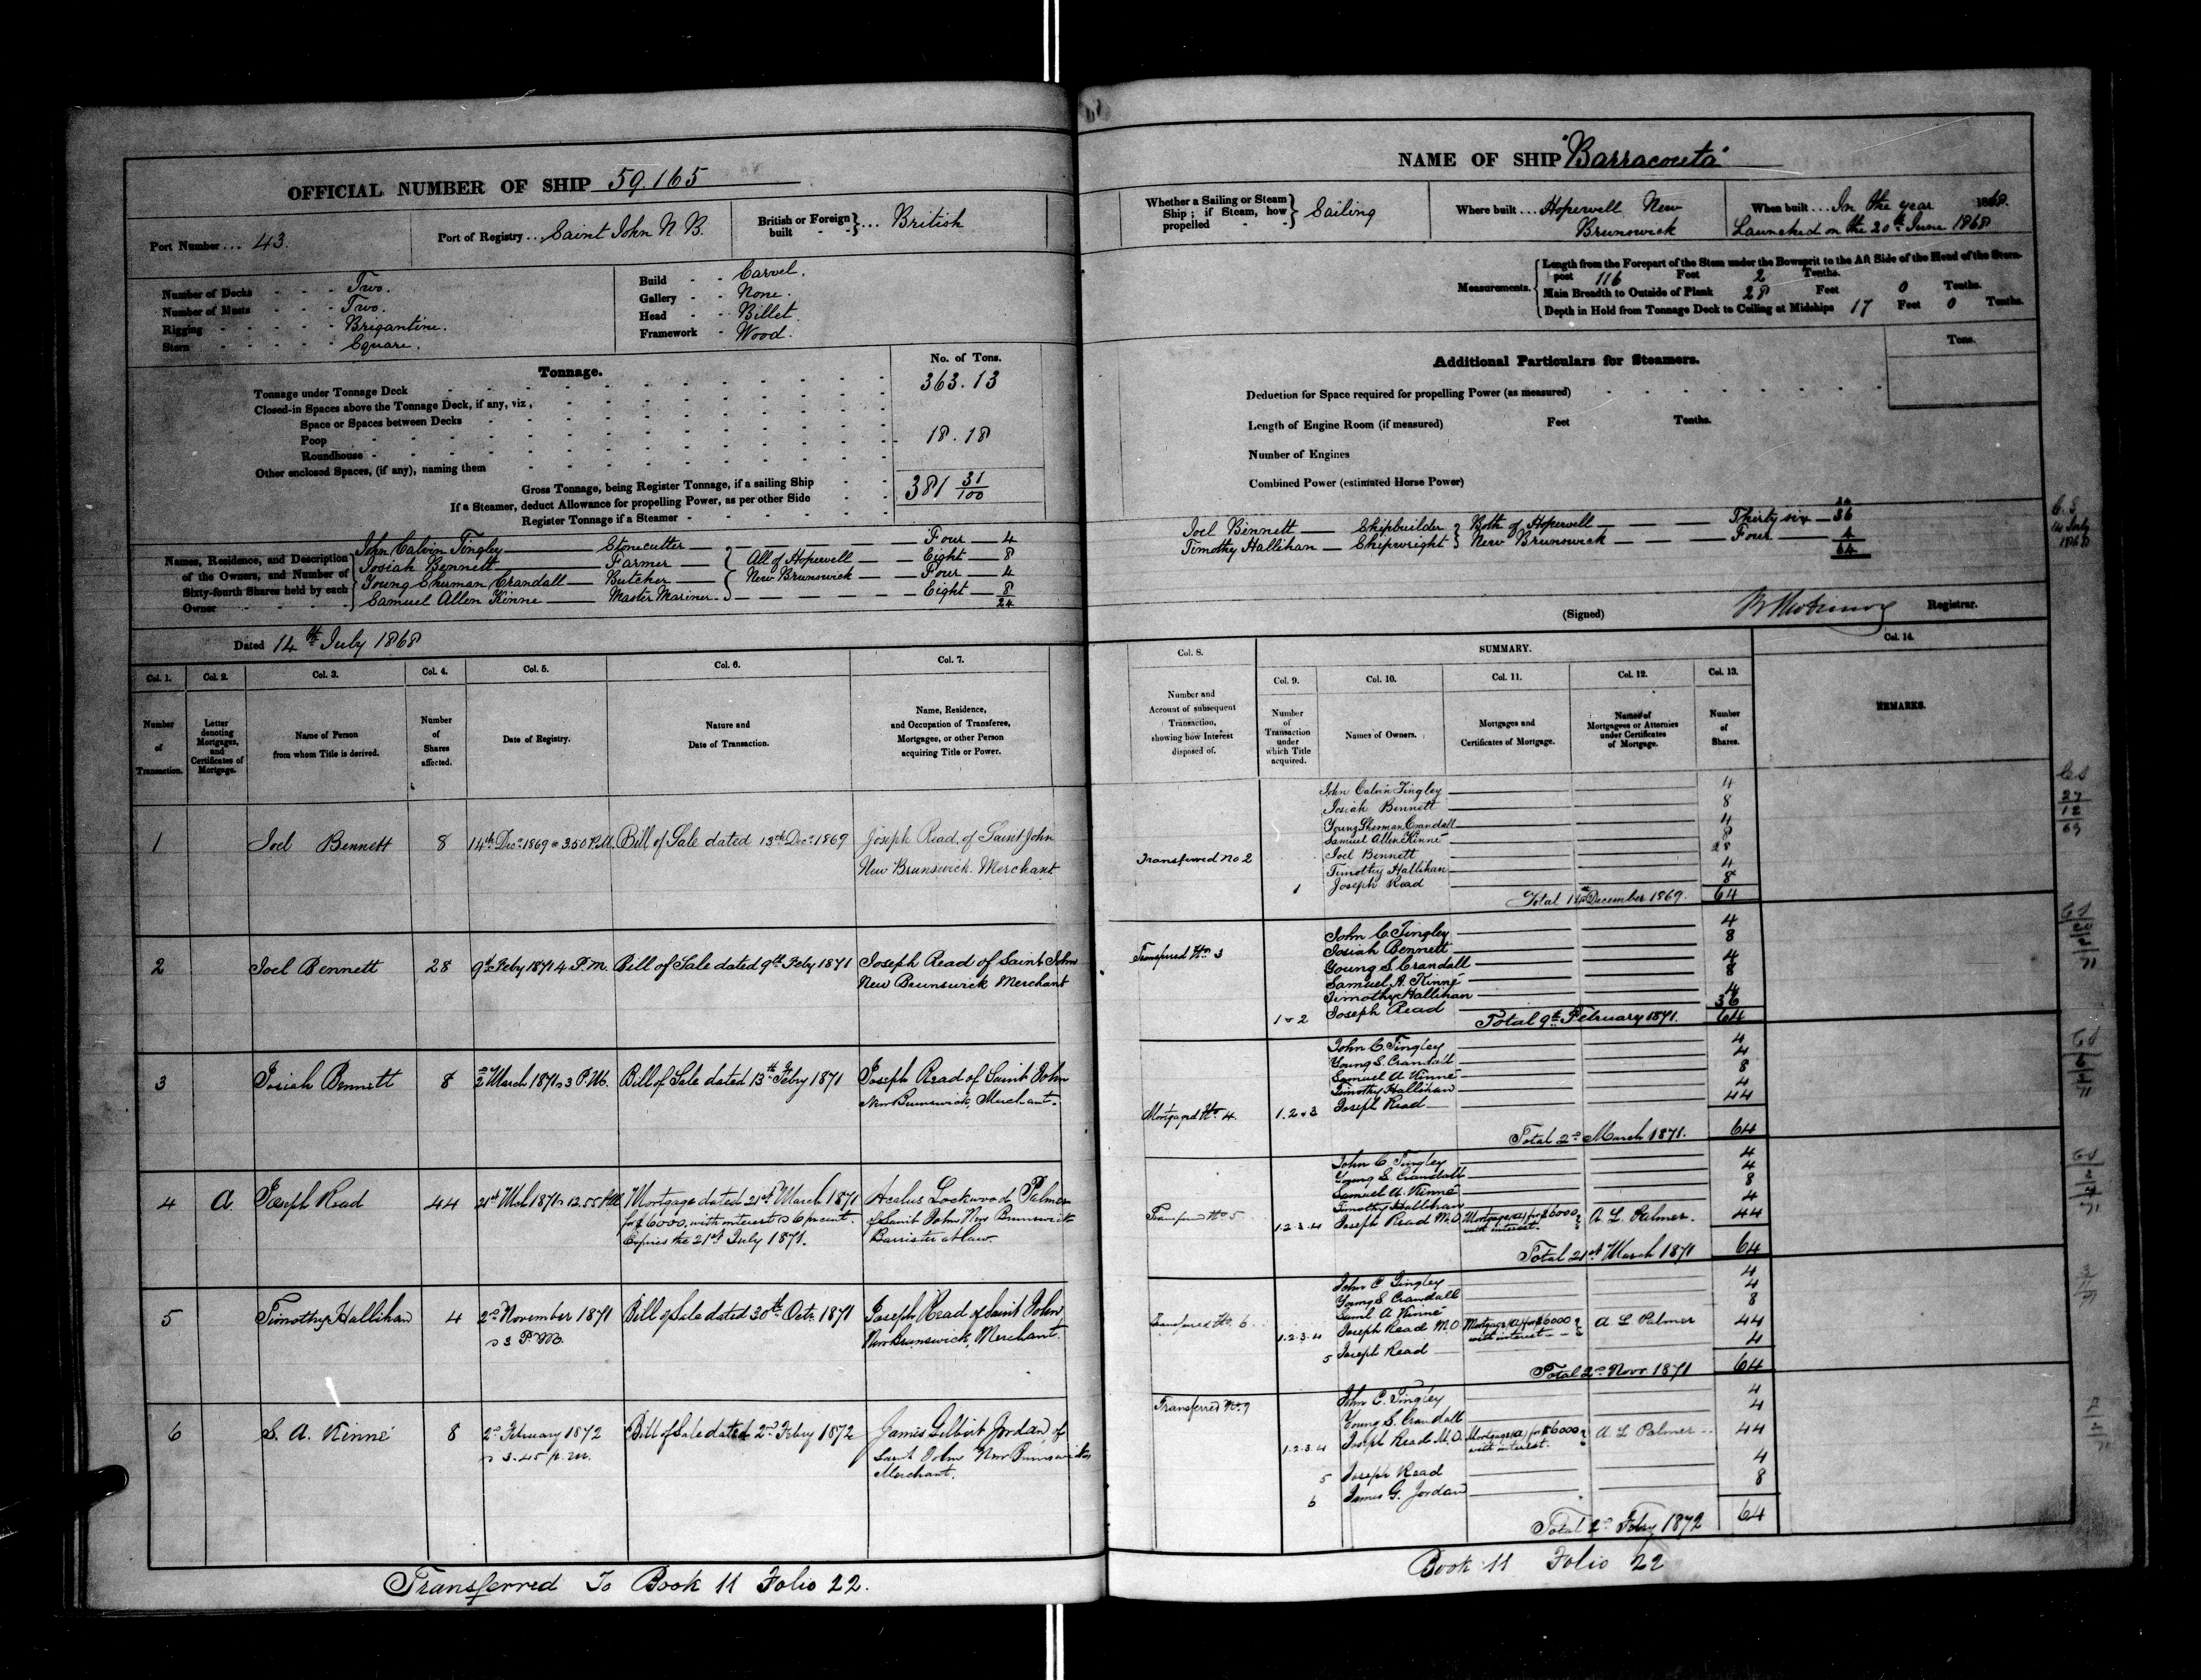 OFFICIAL NUMBER OF SHIP 59.165
Port Number ... 43.
Port of Registry ... Saint John N. B.
British or Foreign built } ... British
Number of Decks - - - Two.
Number of Masts - - - Two.
Rigging - - - - - Brigantine.
Stern - - - - - Square.
Build - - Carvel.
Gallery - - None.
Head - - Billet.
Framework - Wood.
Tonnage.
No. of Tons.
Tonnage under Tonnage Deck 363.13
Closed-in Spaces above the Tonnage Deck, if any, viz,
Space or Spaces between Decks
Poop 18.18
Roundhouse
Other enclosed Spaces, (if any), naming them
Gross Tonnage, being Register Tonnage, if a sailing Ship 381 31/100
If a Steamer, deduct Allowance for propelling Power, as per other Side
Register Tonnage if a Steamer
Names, Residence, and Description of the Owners, and Number of Sixty-fourth Shares held by each Owner
John Calvin Tingley — Stonecutter — Four — 4
Josiah Bennett — Farmer — All of Hopewell — Eight — 8
Young Sherman Crandall — Butcher — New Brunswick — Four — 4
Samuel Allen Kinne — Master Mariner — Eight — 8
24
Dated 14th July 1868
Col. 1. Col. 2. Col. 3. Col. 4. Col. 5. Col. 6. Col. 7.
Number of Transaction.
Letter denoting Mortgages, and Certificates of Mortgage.
Name of Person from whom Title is derived.
Number of Shares affected.
Date of Registry.
Nature and Date of Transaction.
Name, Residence, and Occupation of Transferee, Mortgagee, or other Person acquiring Title or Power.
1 Joel Bennett 8 14th Decr 1869 @ 3.50 P.M. Bill of Sale dated 13th Decr 1869 Joseph Read, of Saint John
New Brunswick. Merchant
2 Joel Bennett 28 9th Feby 1871 4 P.M. Bill of Sale dated 9th Feby 1871 Joseph Read of Saint John
New Brunswick Merchant
3 Josiah Bennett 8 2nd March 1871 @ 3 P.M. Bill of Sale dated 13th Febry 1871 Joseph Read of Saint John
New Brunswick, Merchant.
4 A. Joseph Read 44 21st Mch 1871 @ 12.55 P.M. Mortgage dated 21st March 1871 Acalus Lockwood Palmer
for $6000, with interest @ 6 pr cent. of Saint John New Brunswick
Expires the 21st July 1871. Barrister at law.
5 Timothy Hallihan 4 2nd November 1871 Bill of Sale dated 30th Octr 1871 Joseph Read of Saint John
@ 3 P.M. New Brunswick, Merchant.
6 S. A. Kinne 8 2nd February 1872 Bill of Sale dated 2nd Febry 1872 James Gilbert Jordan, of
@ 3.45 p.m. Saint John New Brunswick
Merchant.
Transferred To Book 11 Folio 22.
NAME OF SHIP "Barracouta"
Whether a Sailing or Steam Ship; if Steam, how propelled } Sailing
Where built ... Hopewell New
Brunswick
When built ... In the year 1868.
Launched on the 20th June 1868
Measurements.
Length from the Forepart of the Stem under the Bowsprit to the Aft Side of the Head of the Stern-
post 116 Feet 2 Tenths.
Main Breadth to Outside of Plank 28 Feet 0 Tenths.
Depth in Hold from Tonnage Deck to Ceiling at Midships 17 Feet 0 Tenths.
Additional Particulars for Steamers.
Tons.
Deduction for Space required for propelling Power (as measured)
Length of Engine Room (if measured) Feet Tenths.
Number of Engines
Combined Power (estimated Horse Power)
24
Joel Bennett — Shipbuilder } Both of Hopewell — Thirty six — 36
Timothy Hallihan — Shipwright } New Brunswick — Four — 4
64
(Signed) Registrar.
Col. 8. SUMMARY. Col. 14.
Col. 9. Col. 10. Col. 11. Col. 12. Col. 13.
Number and Account of subsequent Transaction, showing how Interest disposed of.
Number of Transaction under which Title acquired.
Names of Owners.
Mortgages and Certificates of Mortgage.
Names of Mortgagees or Attornies under Certificates of Mortgage.
Number of Shares.
REMARKS.
John Calvin Tingley 4
Josiah Bennett 8
Young Sherman Crandall 4
Samuel Allen Kinne 8
Transferred No 2 Joel Bennett 28
Timothy Hallihan 4
1 Joseph Read 8
Total 14th December 1869. 64
John C. Tingley 4
Josiah Bennett 8
Transferred No 3 Young S. Crandall 4
Samuel A. Kinne 8
Timothy Hallihan 4
1 & 2 Joseph Read 36
Total 9th February 1871. 64
John C. Tingley 4
Young S. Crandall 4
Samuel A Kinne 8
Timothy Hallihan 4
Mortgaged No 4. 1.2 & 3 Joseph Read 44
Total 2nd March 1871. 64
John C Tingley 4
Young S. Crandall 4
Samuel A. Kinne 8
Timothy Hallihan 4
Transferred No 5 1.2.3.4 Joseph Read M.O. Mortgage (A) for $6000 with interest. A L. Palmer. 44
Total 21st March 1871 64
John C Tingley 4
Young S Crandall 4
Saml A Kinne 8
Transferred No. 6 1.2.3.4 Joseph Read M.O Mortgage (A) for $6000 with interest A L Palmer 44
5 Joseph Read 4
Total 2nd Novr 1871 64
Transferred No. 7 John C. Tingley 4
Young S. Crandall 4
1.2.3.4 Joseph Read M.O. Mortgage (A) for $6000 with interest. A L Palmer 44
5 Joseph Read 4
6 James G. Jordan 8
Total 2nd Febry 1872 64
Book 11 Folio 22